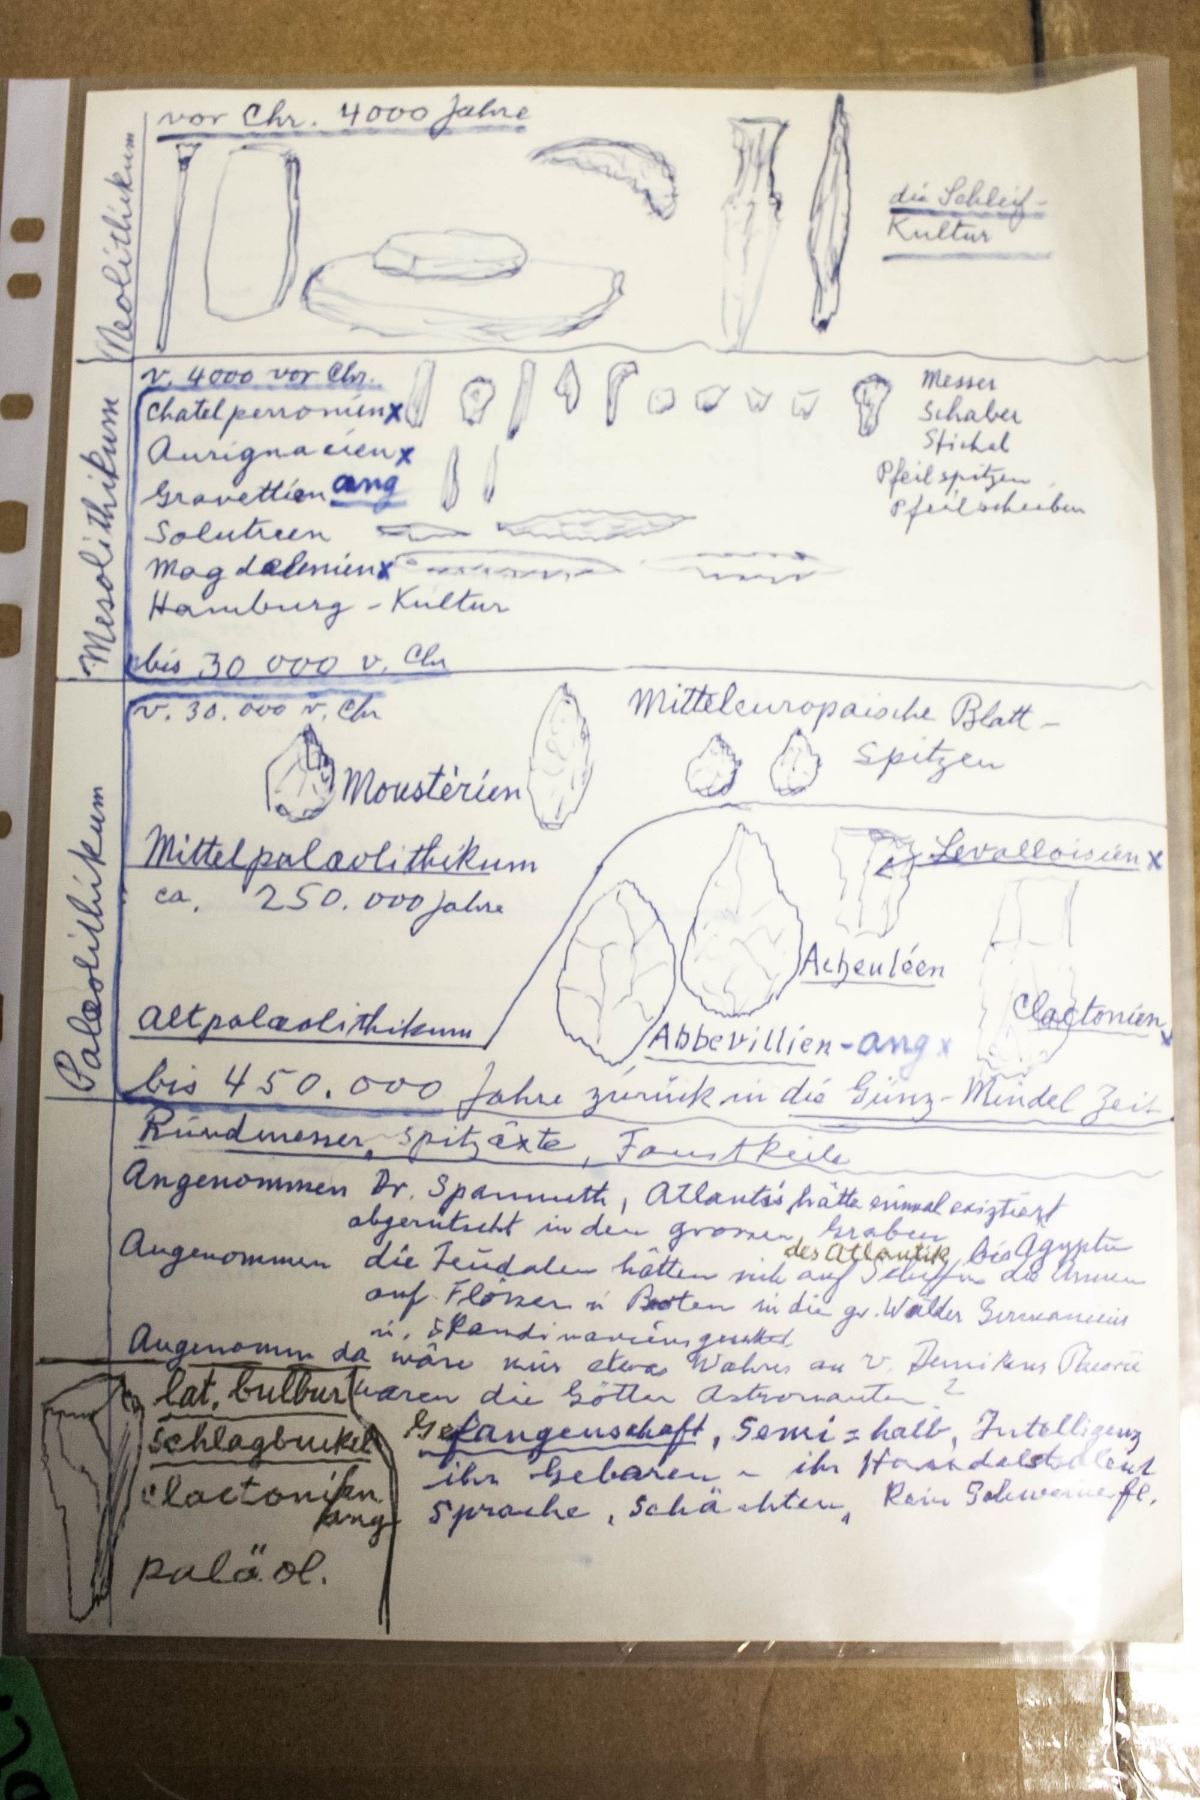 vor Chr. 4000 Jahre
Neolithikum
die Schleif-
Kultur
Mesolithikum
v. 4000 vor Chr.
Chatelperronien x
Messer
Schaber
Stichel
Pfeilspitzen
Pfeilscheiben
Aurignacien x
Gravettien ang
Solutreen
Magdalenien x
Hamburg-Kultur
bis 30 000 v. Chr
Palæolithikum
v. 30.000 v. Chr
Moustérien
Mitteleuropaische Blatt-
Spitzen
Mittelpalæolithikum
ca. 250.000 Jahre
Levalloisien x
Acheuléen
Clactonien x
Altpalæolithikum
Abbevillien-ang x
bis 450.000 Jahre zurück in die Günz-Mindel Zeit
Rundmesser, Spitzäxte, Faustkeile
Angenommen Dr. Spannuth, Atlantis hätte einmal existiert
abgerutscht in den grossen Graben
des Atlantik, bis Ägypten
Angenommen die Feudalen hätten sich auf Schiffen die Armen
auf Flössen u Booten in die gr. Wälder Germaniens
u. Skandinaviens
Angenomm da wäre nur etwas Wahres an v. Denikens Theorie
waren die Götter Astronauten?
lat. bulbur
Schlagbuckel
clactonien
ang
paläol.
Gefangenschaft, Semi = halb, Intelligenz
ihr Gebaren - ihr
Sprache, Schächten, Kein Schweinefl.